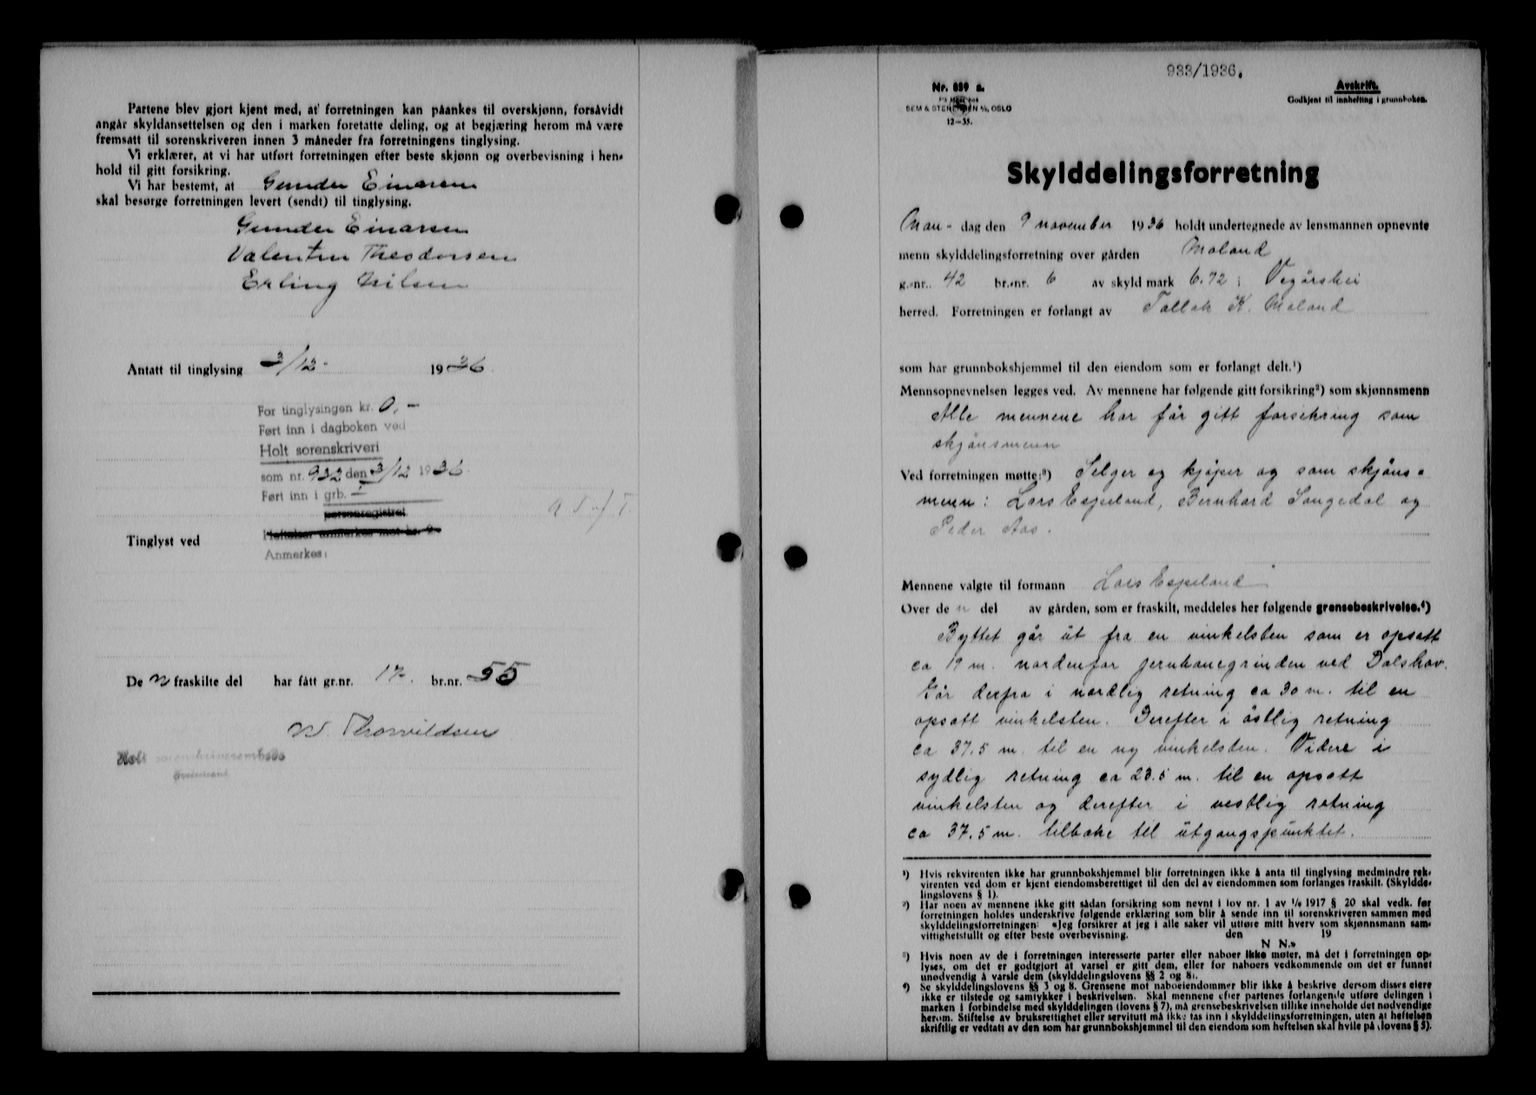 Partene blev gjort kjent med, at forretningen kan påankes til overskjønn, forsåvidt
angår skyldansettelsen og den i marken foretatte deling, og at begjæring herom må være
fremsatt til sorenskriveren innen 3 måneder fra forretningens tinglysing.
Vi erklærer, at vi har utført forretningen efter beste skjønn og overbevisning i hen-
hold til gitt forsikring.
Vi har bestemt, at Gunder Einarsen
skal besørge forretningen levert (sendt) til tinglysing.
Gunder Einarsen
Valentin Theodorsen
Erling Nilsen
Antatt til tinglysing 3/12- 1936
For tinglysingen kr. 0.-
Ført inn i dagboken ved
Holt sorenskriveri
som nr. 932 den 3/12 1936
Ført inn i grb.
personregistret
Heftelser anmerket mot kr.
Tinglyst ved
Anmerkes:
De n fraskilte del har fått gr.nr. 17. br.nr. 55
W Thorvildsen
Holt sorenskriverembede
933/1936.
Nr. 859 a.
SEM & STENERSEN A/S, OSLO
12-35.
Avskrift.
Godkjent til innhefting i grunnboken.
Skylddelingsforretning
Man- dag den 9 november 1936 holdt undertegnede av lensmannen opnevnte
menn skylddelingsforretning over gården Moland
g.-nr. 42 br.-nr. 6 av skyld mark 6.72 i Vegårshei
herred. Forretningen er forlangt av Tallak K. Moland
som har grunnbokshjemmel til den eiendom som er forlangt delt.¹)
Mennsopnevnelsen legges ved. Av mennene har følgende gitt forsikring²) som skjønnsmenn
Alle mennene har før gitt forsikring som
skjønsmenn
Ved forretningen møtte:³) Selger og kjøper og som skjøns-
menn: Lars Espeland, Bernhard Songedal og
Peder Aas.
Mennene valgte til formann Lars Espeland
Over de n del av gården, som er fraskilt, meddeles her følgende grensebeskrivelse.⁴)
Byttet går ut fra en vinkelsten som er opsatt
ca 19 m. nordenfor jernbanegrinden ved Dalshav.
Går derfra i nordlig retning ca 30 m. til en
opsatt vinkelsten. Derefter i østlig retning
ca 37.5 m. til en ny vinkelsten. Videre i
sydlig retning ca 23.5 m. til en opsatt
vinkelsten og derefter i vestlig retning
ca 37.5 m. tilbake til utgangspunktet.
¹) Hvis rekvirenten ikke har grunnbokshjemmel blir forretningen ikke å anta til tinglysing medmindre rek-
virenten ved dom er kjent eiendomsberettiget til den del av eiendommen som forlanges fraskilt. (Skyldde-
lingslovens § 1).
²) Har noen av mennene ikke gitt sådan forsikring som nevnt i lov nr. 1 av 1/6 1917 § 20 skal vedk. før
forretningen holdes underskrive følgende erklæring som blir å sende inn til sorenskriveren sammen med
skylddelingsforretningen: «Jeg forsikrer at jeg i alle saker vil utføre mitt hverv som skjønnsmann sam-
vittighetsfullt og efter beste overbevisning. den 19
N N.»
³) Hvis noen av de i forretningen interesserte parter eller naboer ikke møter, må det i forretningen op-
lyses, om det er godtgjort at varsel er gitt dem, eller for naboers vedkommende om det er funnet
unødvendig å varsle dem (skylddelingslovens §§ 2 og 8).
⁴) Se skylddelingslovens §§ 3 og 8. Grensene mot naboeiendommer blir ikke å beskrive dersom disses eiere
ikke er tilstede og samtykker i beskrivelsen. Skal mennene efter partenes forlangende utføre delingen i
marken i forbindelse med skylddelingen (lovens § 7), må grensebeskrivelsen tillike inneholde det nødvendige
herom. Stiftelse av bruksrettighet eller servitutt må ikke tas inn i skylddelingsforretningen, uten at heftelsen
skriftlig er vedtatt av den som har grunnbokshjemmel til den eiendom som heftelsen skal hvile på (lovens § 5).